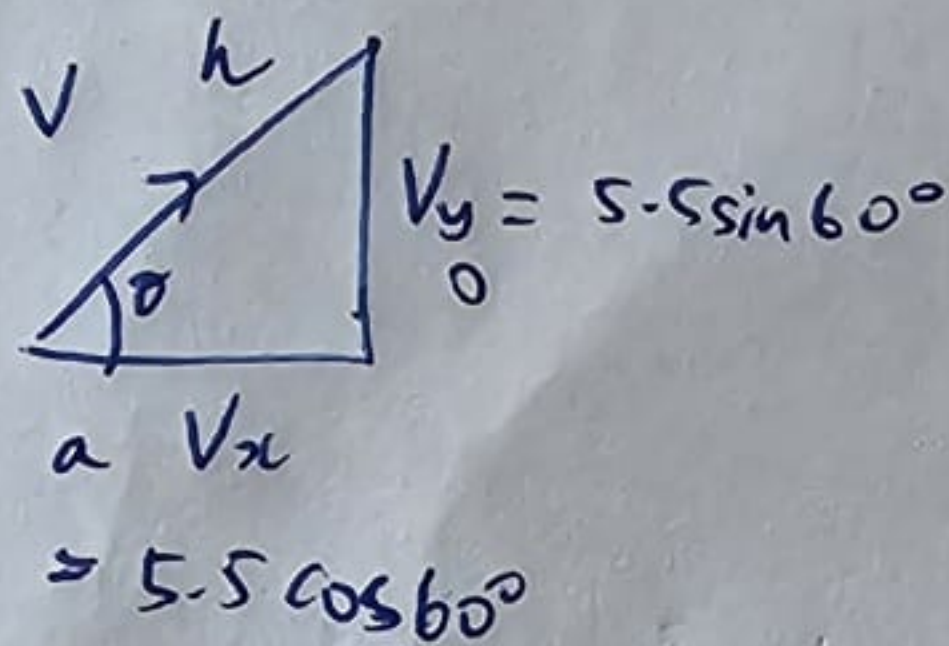 h
V
Vy = 5.5sin60°
θ
o
a Vx
= 5.5 cos60°